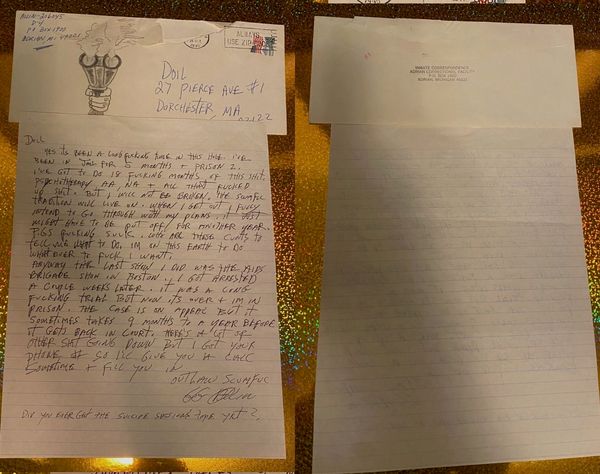 ALLIN-206045
D-4
PO BOX 1900
ADRIAN, MI. 49221
ALWAYS
USE ZIP
DOIL
27 PIERCE AVE #1
DORCHESTER, MA
02122
DOIL
YES ITS BEEN A LONG FUCKING TIME IN THIS HOLE. I'VE
BEEN IN JAIL FOR 5 MONTHS + PRISON 2.
I'VE GOT TO DO 18 FUCKING MONTHS OF THIS SHIT.
PSYCHOTHERAPY, AA, NA + ALL THAT FUCKED
UP SHIT. BUT I WILL NOT BE BROKEN. THE SCUMFUC
TRADITION WILL LIVE ON. WHEN I GET OUT I FULLY
INTEND TO GO THROUGH WITH MY PLANS. IT JUST
MIGHT HAVE TO BE PUT OFF FOR ANOTHER YEAR.
PIGS FUCKING SUCK. WHO ARE THESE CUNTS TO
TELL ME WHAT TO DO, IM ON THIS EARTH TO DO
WHAT EVER TO FUCK I WANT.
ANYWAY THE LAST SHOW I DID WAS THE AIDS
BRIGADE SHOW IN BOSTON + I GOT ARRESTED
A COUPLE WEEKS LATER. IT WAS A LONG
FUCKING TRIAL BUT NOW ITS OVER + IM IN
PRISON. THE CASE IS ON APPEAL BUT IT
SOMETIMES TAKES 9 MONTHS TO A YEAR BEFORE
IT GETS BACK IN COURT. HERE'S A LOT OF
OTHER SHIT GOING DOWN BUT I GOT YOUR
PHONE # SO I'LL GIVE YOU A CALL
SOMETIME + FILL YOU IN
OUTLAW SCUMFUC
GG Allin
DID YOU EVER GET THE SUICIDE SESSIONS TAPE YET?
INMATE CORRESPONDENCE
ADRIAN CORRECTIONAL FACILITY
P.O. BOX 1900
ADRIAN, MICHIGAN 49221